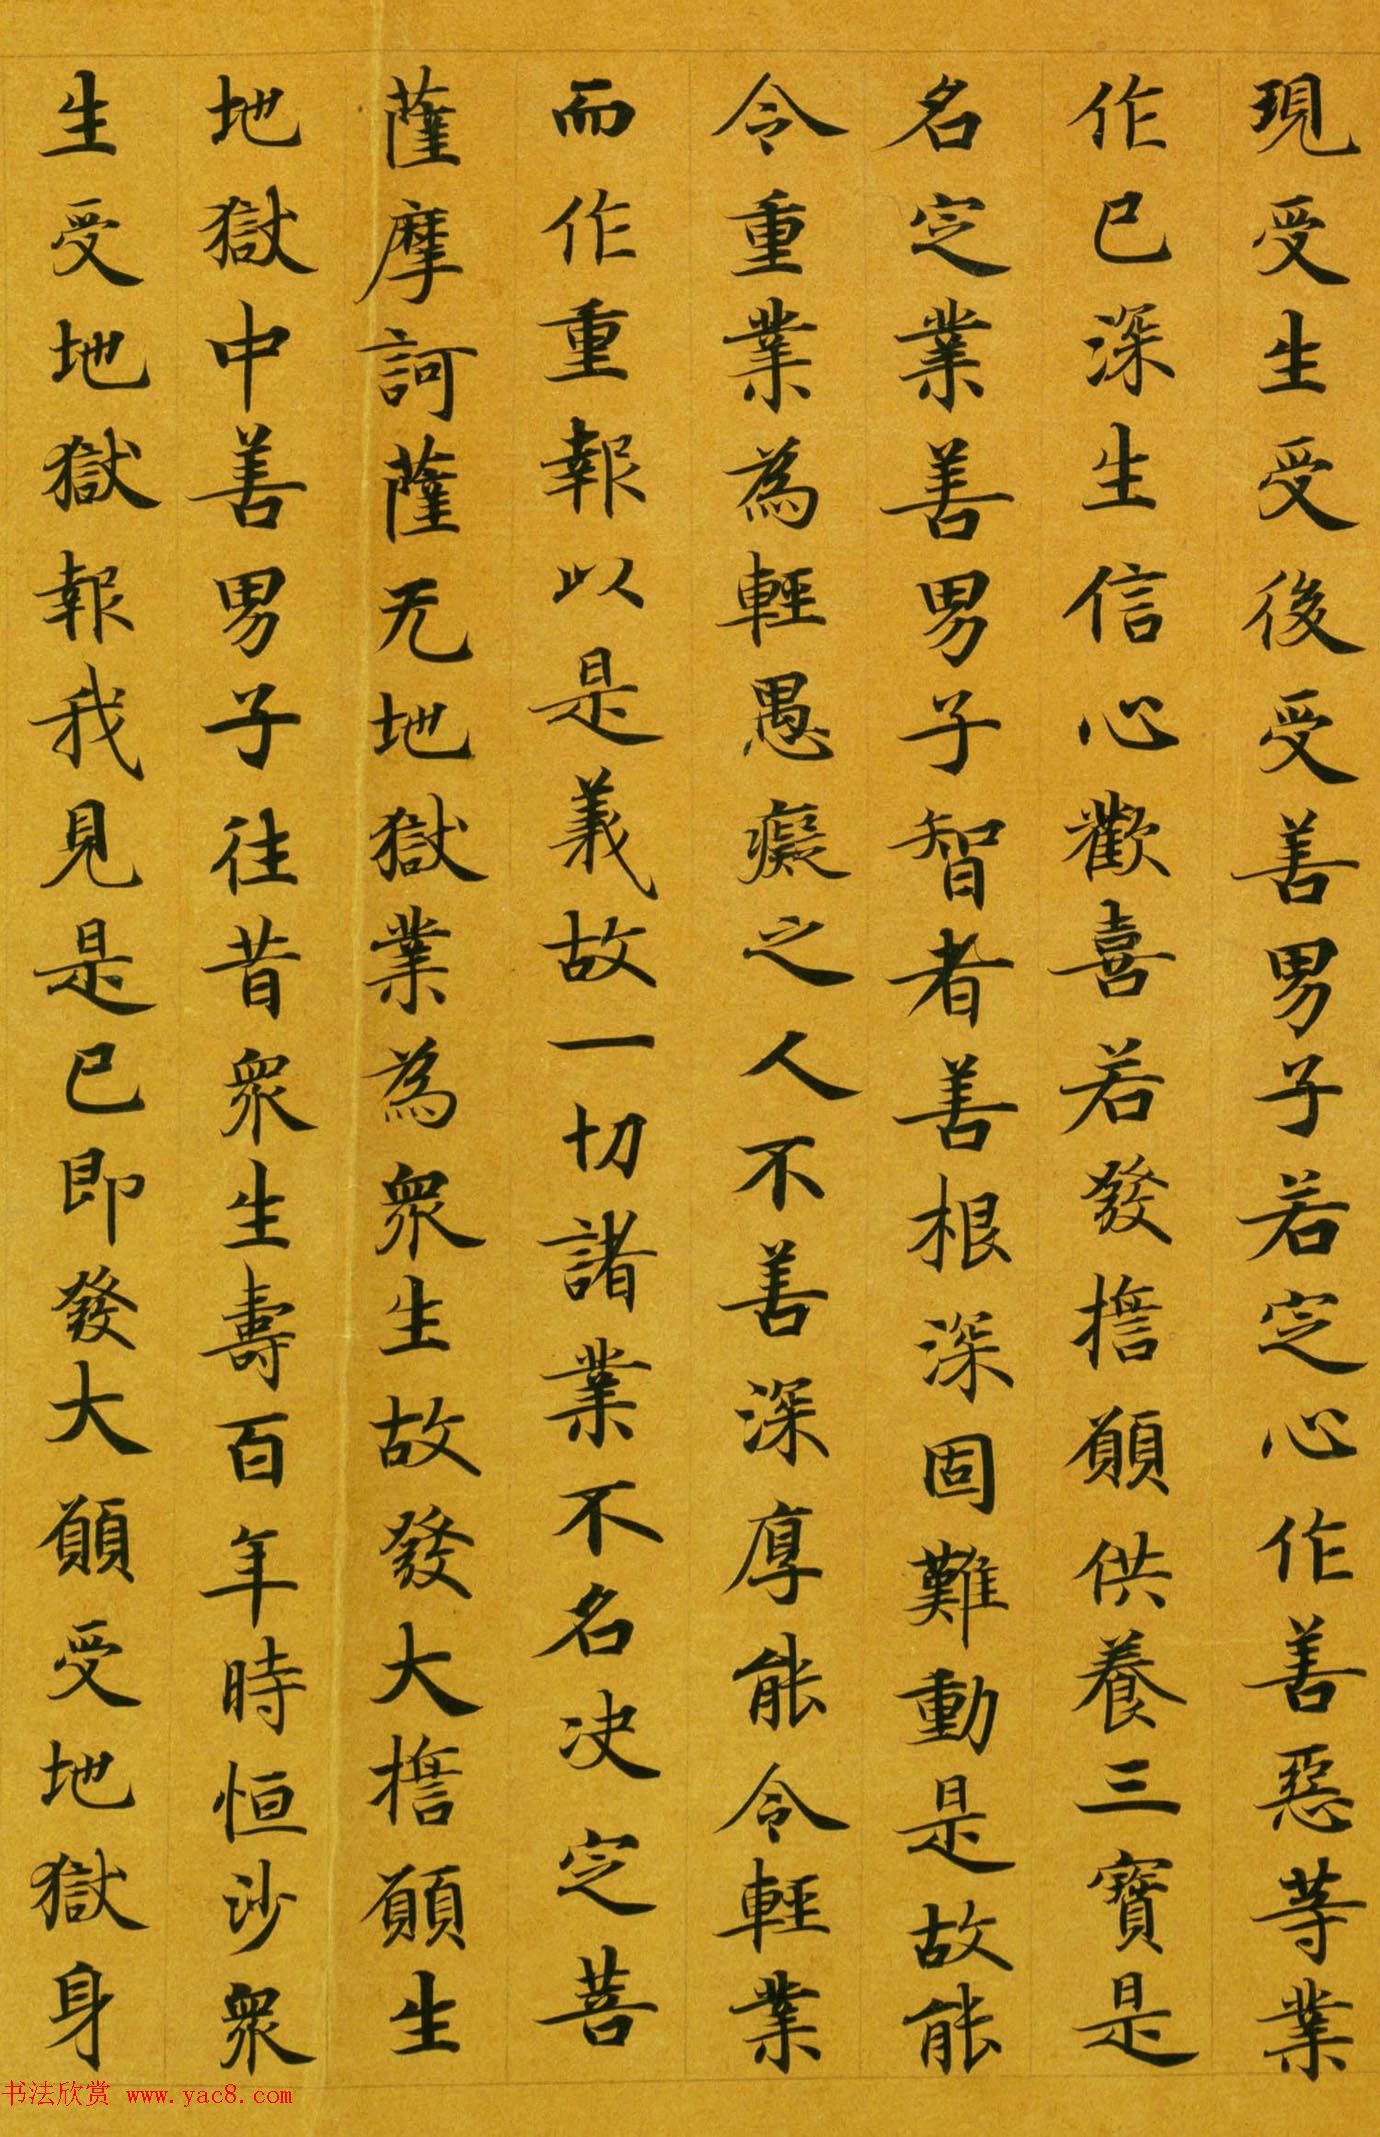 現受生受後受善男子若定心作善惡等業
作已深生信心歡喜若發擔願供養三寶是
名定業善男子智者善根深固難動是故能
令重業為輕愚癡之人不善深厚能令輕業
而作重報以是義故一切諸業不名决定菩
薩摩訶薩无地獄業為衆生故發大擔願生
地獄中善男子往昔衆生壽百年時恒沙衆
生受地獄報我見是已即發大願受地獄身
书法欣赏 www.yac8.com